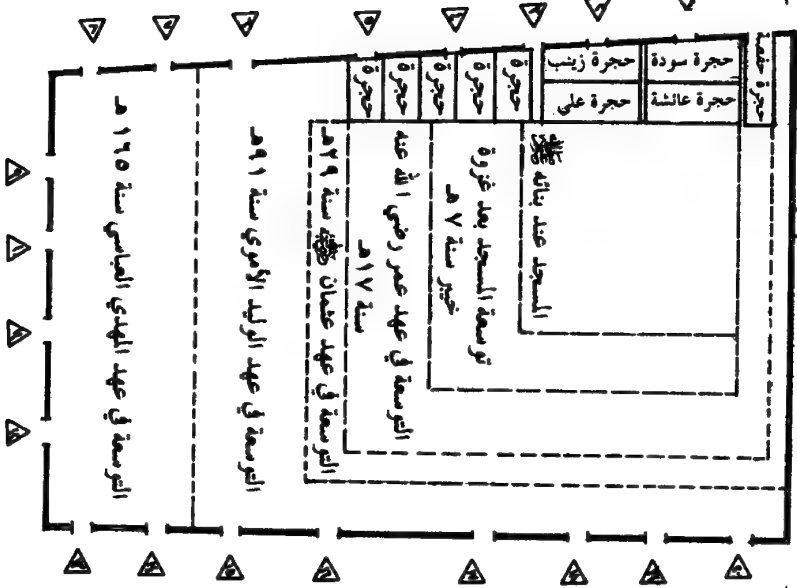 حجرة حفصة
حجرة سودة
حجرة زينب
حجرة عائشة
حجرة علي
حجرة
حجرة
حجرة
حجرة
حجرة
المسجد عند بنائه ﷺ
توسعة المسجد بعد غزوة
خيبر سنة ٧ هـ
التوسعة في عهد عمر رضي الله عنه
سنة ١٧ هـ
التوسعة في عهد عثمان رضي الله عنه سنة ٢٩ هـ
التوسعة في عهد الوليد الأموي سنة ٩١ هـ
التوسعة في عهد المهدي العباسي سنة ١٦٥ هـ